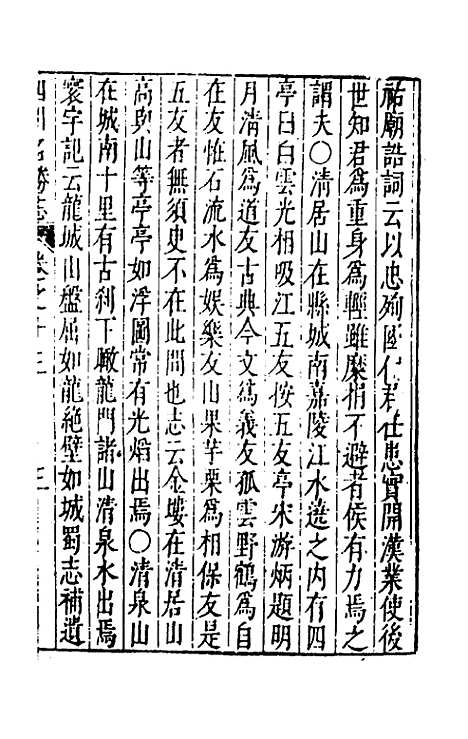 祐廟誥詞云以忠殉國代君任患實開漢業使後
世知君為重身為輕雖糜捐不避者侯有力焉之
謂夫〇清居山在縣城南嘉陵江水遶之内有四
亭曰白雲光相吸江五友按五友亭宋游炳題明
月清風為道友古典今文為義友孤雲野鶴為自
在友怪石流水為娛樂友山果芋栗為相保友是
五友者無須臾不在此間也志云金堘在清居山
高與山等亭亭如浮圖常有光焰出焉〇清泉山
在城南十里有古刹下瞰龍門諸山清泉水出焉
寰宇記云龍城山盤屈如龍絶壁如城蜀志補遺
四川名勝志 卷之十三 三